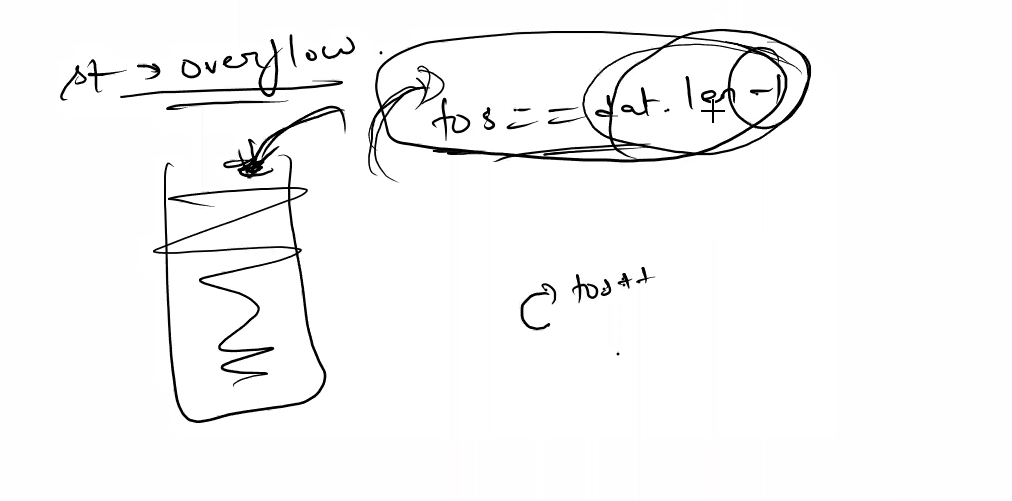 st → overflow.
tos == dat.len-1
tos++